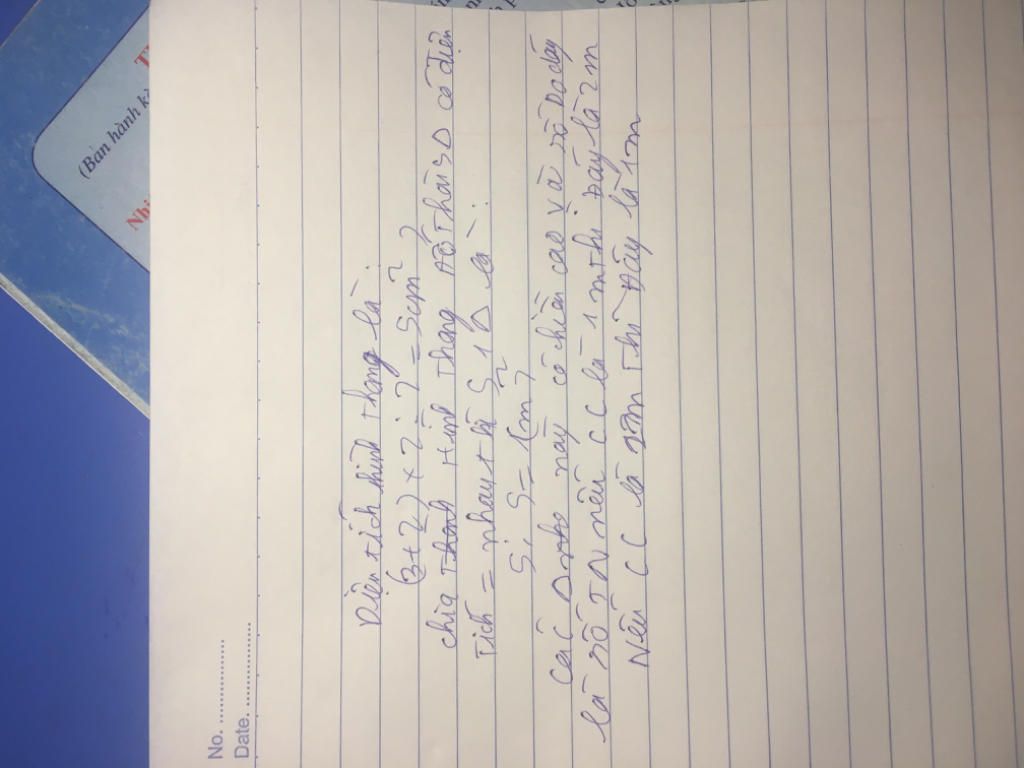 No. ..............
Date. ..................
Diện tích hình thang là:
(3+2) × 2 : 2 = 5(m²)
chia Hình thang đó Thành 5 Δ có diện
Tích = nhau thì S 1 Δ là:
5 : 5 = 1(m²)
các Δ nhỏ này có chiều cao và số đo đáy
là số TN nếu CC là 1 m thì đáy là 2m
Nếu CC là 2m Thì đáy là 1m
(Ban hành k